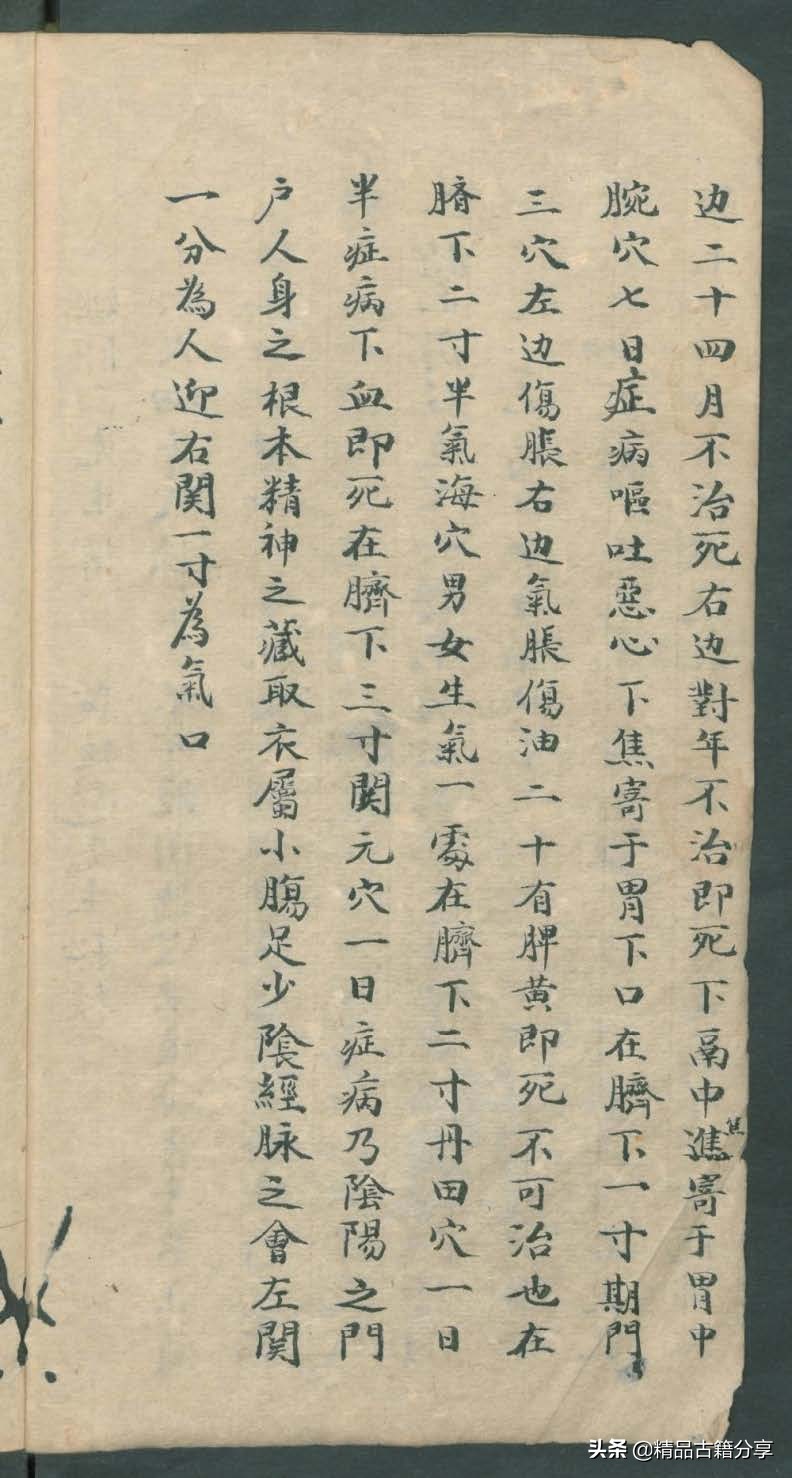 边二十四月不治死右边對年不治即死下鬲中進寄于胃中
焦
腕穴七日症病嘔吐惡心下焦寄于胃下口在臍下一寸期門
三穴左边傷脹右边氣脹傷油二十有脾黄即死不可治也在
臍下二寸半氣海穴男女生氣一處在臍下二寸丹田穴一日
半症病下血即死在臍下三寸関元穴一日症病乃陰陽之門
户人身之根本精神之藏取衣屬小腸足少陰經脉之會左関
一分為人迎右関一寸為氣口
头条 @精品古籍分享